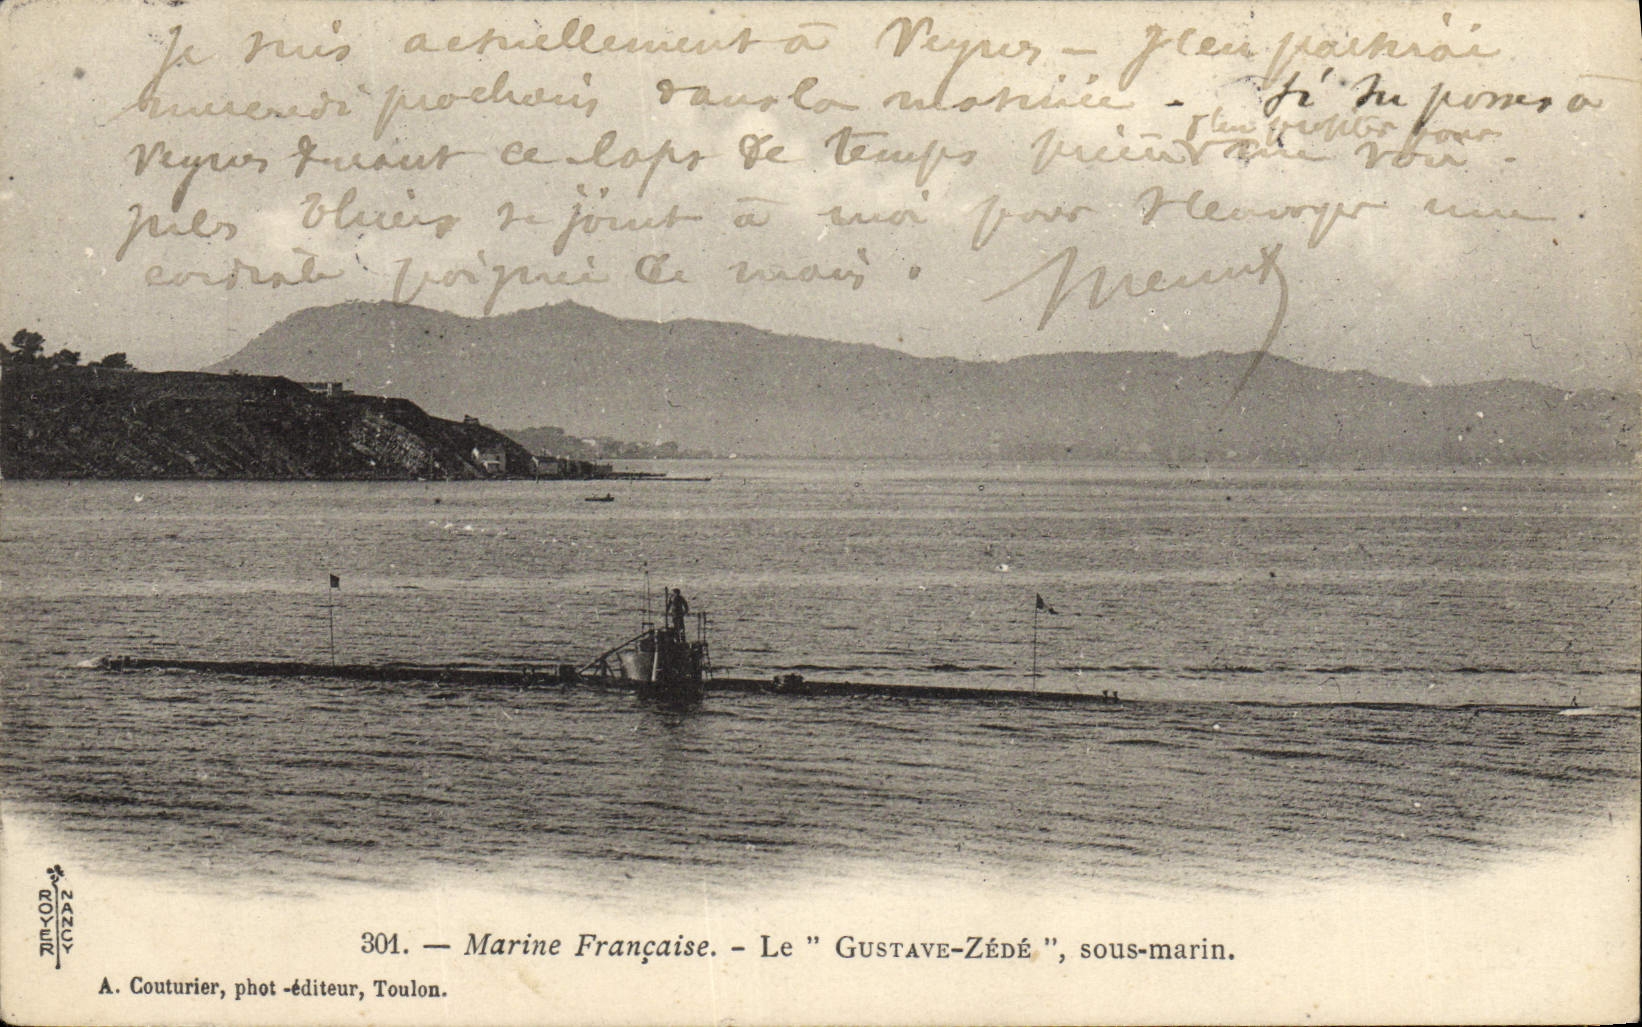 Je suis actuellement à Veynes — J'en partirai
mercredi prochain dans la matinée. Si tu passes à
d'en profiter pour
Veynes durant ce laps de temps me voir.
se joint à moi pour t'envoyer une
cordiale poignée de main.
ROYER NANCY
301. — Marine Française. - Le " GUSTAVE-ZÉDÉ ", sous-marin.
A. Couturier, phot-éditeur, Toulon.